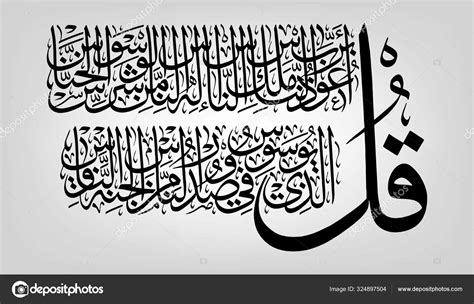 قُل أعوذ برب الناس ملك الناس إله الناس من شر الوسواس الخناس
الذي يوسوس في صدور الناس من الجنة والناس
depositphotos Image ID: 324897504 www.depositphotos.com